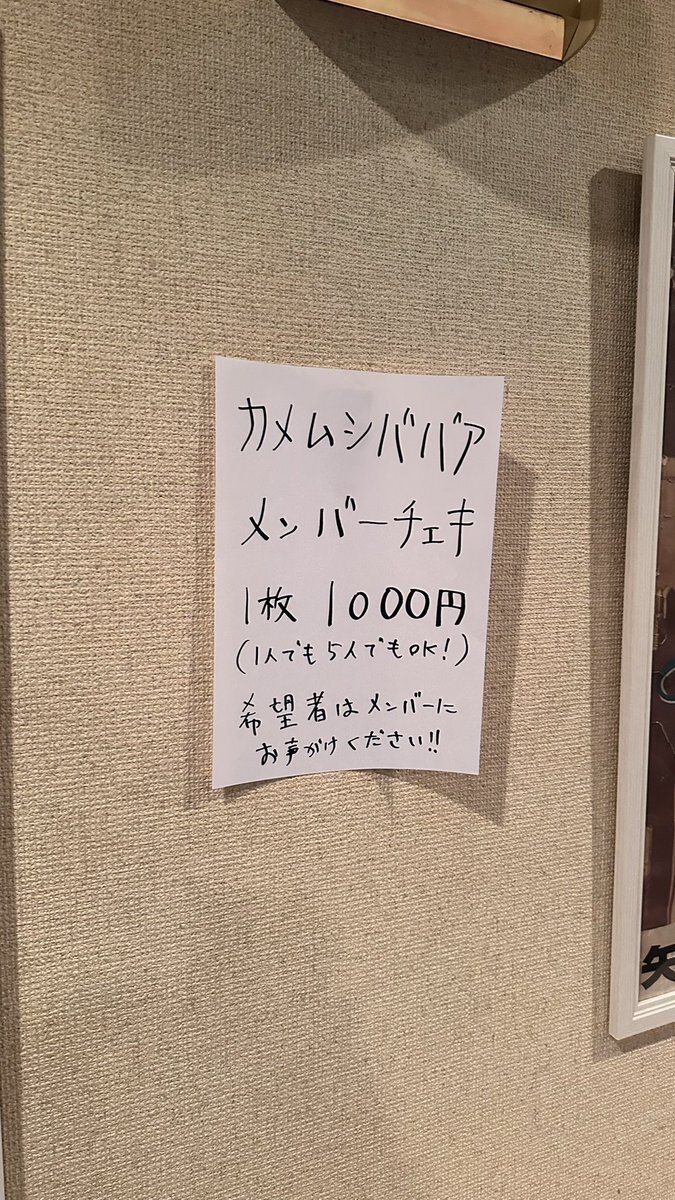 カメムシババア
メンバーチェキ
1枚 1000円
(1人でも5人でもOK!)
希望者はメンバーに
お声がけください!!
矢